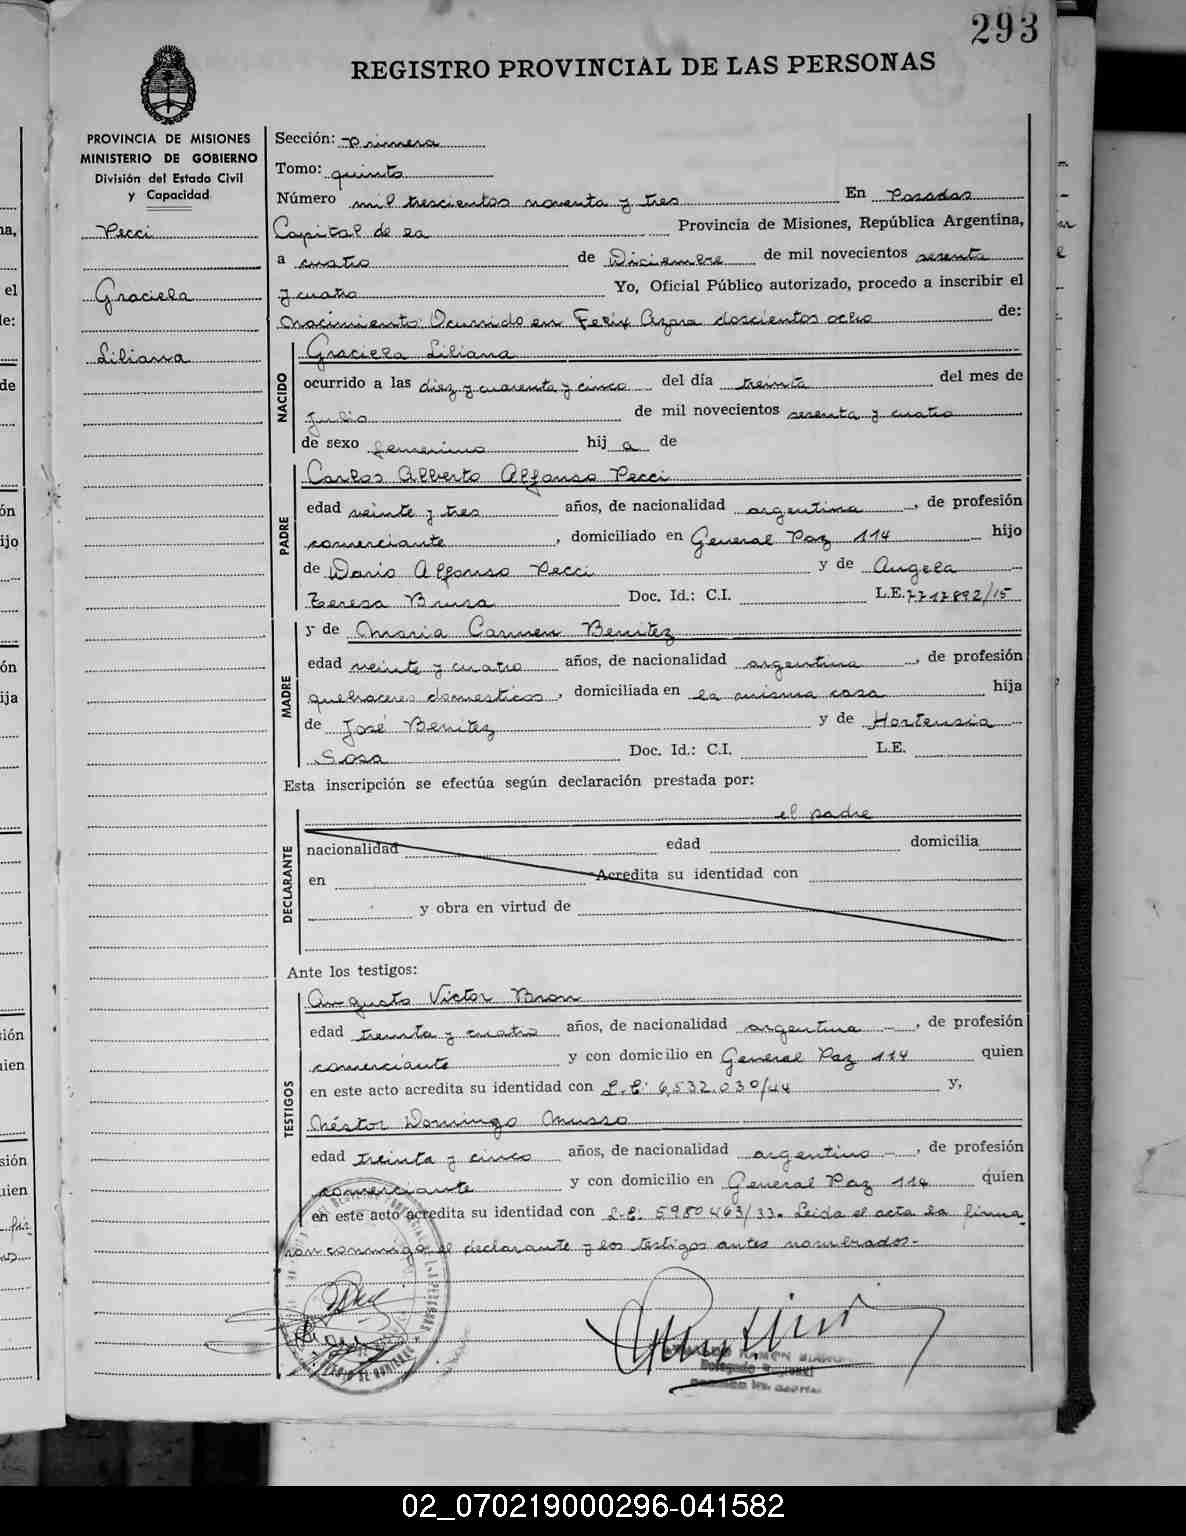 293
REGISTRO PROVINCIAL DE LAS PERSONAS
PROVINCIA DE MISIONES
MINISTERIO DE GOBIERNO
División del Estado Civil
y Capacidad
Pecci
Graciela
Liliana
Sección: Primera
Tomo: quinto
Número mil trescientos noventa y tres En Posadas
Capital de la Provincia de Misiones, República Argentina,
a cuatro de Diciembre de mil novecientos sesenta
y cuatro Yo, Oficial Público autorizado, procedo a inscribir el
nacimiento Ocurrido en Felix Azara doscientos ocho de:
NACIDO
Graciela Liliana
ocurrido a las diez y cuarenta y cinco del día treinta del mes de
Julio de mil novecientos sesenta y cuatro
de sexo femenino hij a de
PADRE
Carlos Alberto Alfonso Pecci
edad veinte y tres años, de nacionalidad argentina, de profesión
comerciante, domiciliado en General Paz 114 hijo
de Dario Alfonso Pecci y de Angela
Teresa Brusa Doc. Id.: C.I. L.E. 7717892/15
MADRE
y de Maria Carmen Benitez
edad veinte y cuatro años, de nacionalidad argentina, de profesión
quehaceres domesticos, domiciliada en la misma casa hija
de José Benitez y de Hortensia
Sosa Doc. Id.: C.I. L.E.
Esta inscripción se efectúa según declaración prestada por:
DECLARANTE
el padre
nacionalidad edad domicilia
en Acredita su identidad con
y obra en virtud de
Ante los testigos:
TESTIGOS
Augusto Victor Bron
edad treinta y cuatro años, de nacionalidad argentina, de profesión
comerciante y con domicilio en General Paz 114 quien
en este acto acredita su identidad con L.E: 6,532.030/44 y,
Néstor Domingo Musso
edad treinta y cinco años, de nacionalidad argentino, de profesión
comerciante y con domicilio en General Paz 114 quien
en este acto acredita su identidad con L.E: 5980463/33. Leida el acta la firma
ron conmigo el declarante y los testigos antes nombrados.-
RAMON
02_070219000296-041582